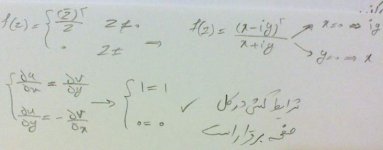 f(z) = { (z̄)^۲ / z   z ≠ ۰
۰   z =
⇒ f(z) = (x - iy)^۲ / (x + iy)
x = ۰ ⇒ iy
y = ۰ ⇒ x
{ ∂u/∂x = ∂v/∂y
∂u/∂y = -∂v/∂x
→ { 1 = 1
0 = 0 ✓
شرایط کشی در کل
صفحه برقرار است